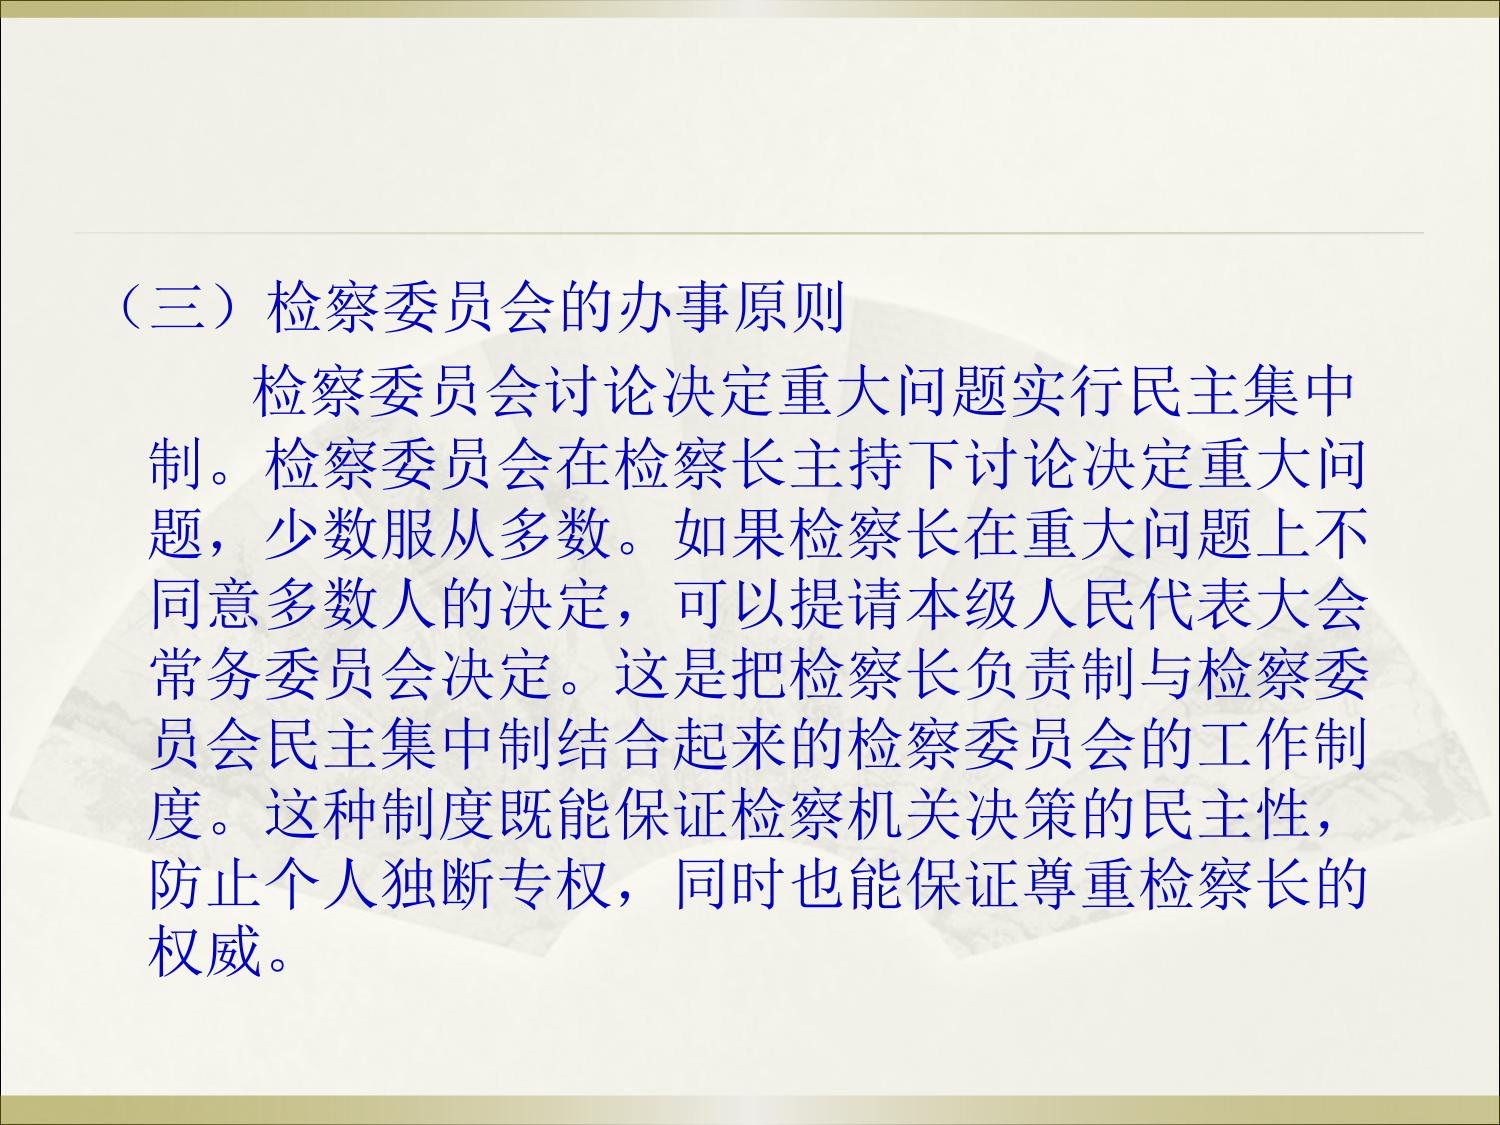 （三）检察委员会的办事原则
检察委员会讨论决定重大问题实行民主集中
制。检察委员会在检察长主持下讨论决定重大问
题，少数服从多数。如果检察长在重大问题上不
同意多数人的决定，可以提请本级人民代表大会
常务委员会决定。这是把检察长负责制与检察委
员会民主集中制结合起来的检察委员会的工作制
度。这种制度既能保证检察机关决策的民主性，
防止个人独断专权，同时也能保证尊重检察长的
权威。